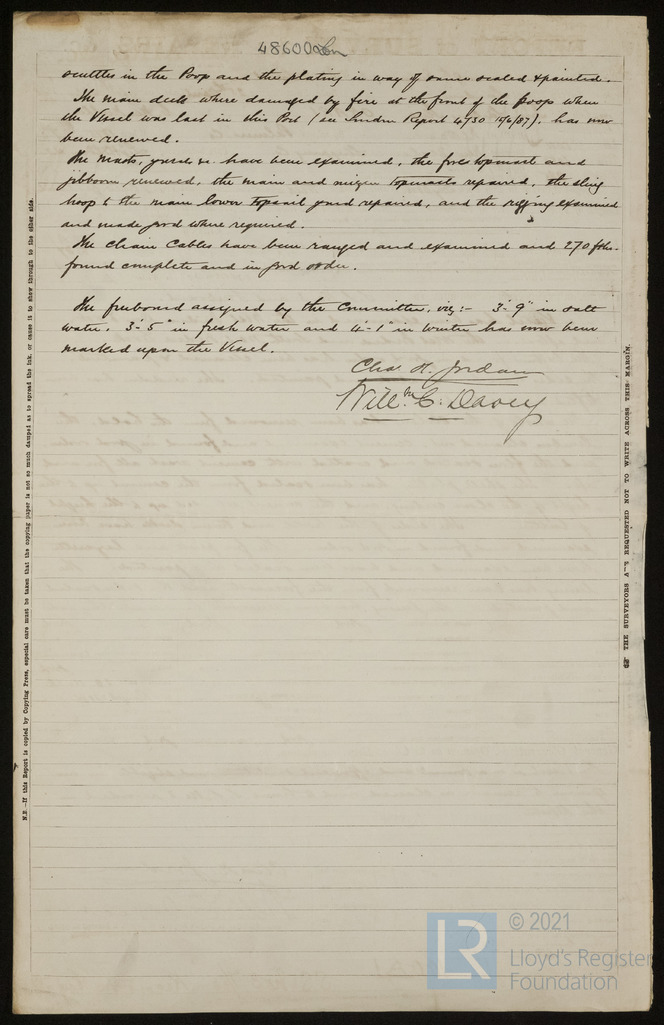 48600 Lon
scuttles in the Poop and the plating in way of same scaled & painted.
The main deck where damaged by fire at the front of the poop when
the Vessel was last in this Port (see London Report has now
been renewed.
The masts, yards &c. have been examined, the fore topmast and
jibboom renewed, the main and mizen topmasts repaired, the sling
hoop to the main lower topsail yard repaired, and the rigging examined
and made good where required.
The Chain Cables have been ranged and examined and 270 fths.
found complete and in good order.
The freeboard assigned by the Committee, viz:- 3'-9" in salt
water, 3'-5" in fresh water and 4-1" in winter has now been
marked upon the Vessel.
Chas. H. Jordan
Willm. C. Davey
N.B.—If this Report is copied by Copying Press, especial care must be taken that the copying paper is not so much damped as to spread the ink, or cause it to show through to the other side.
THE SURVEYORS ARE REQUESTED NOT TO WRITE ACROSS THIS MARGIN.
LR
© 2021
Lloyd's Register
Foundation